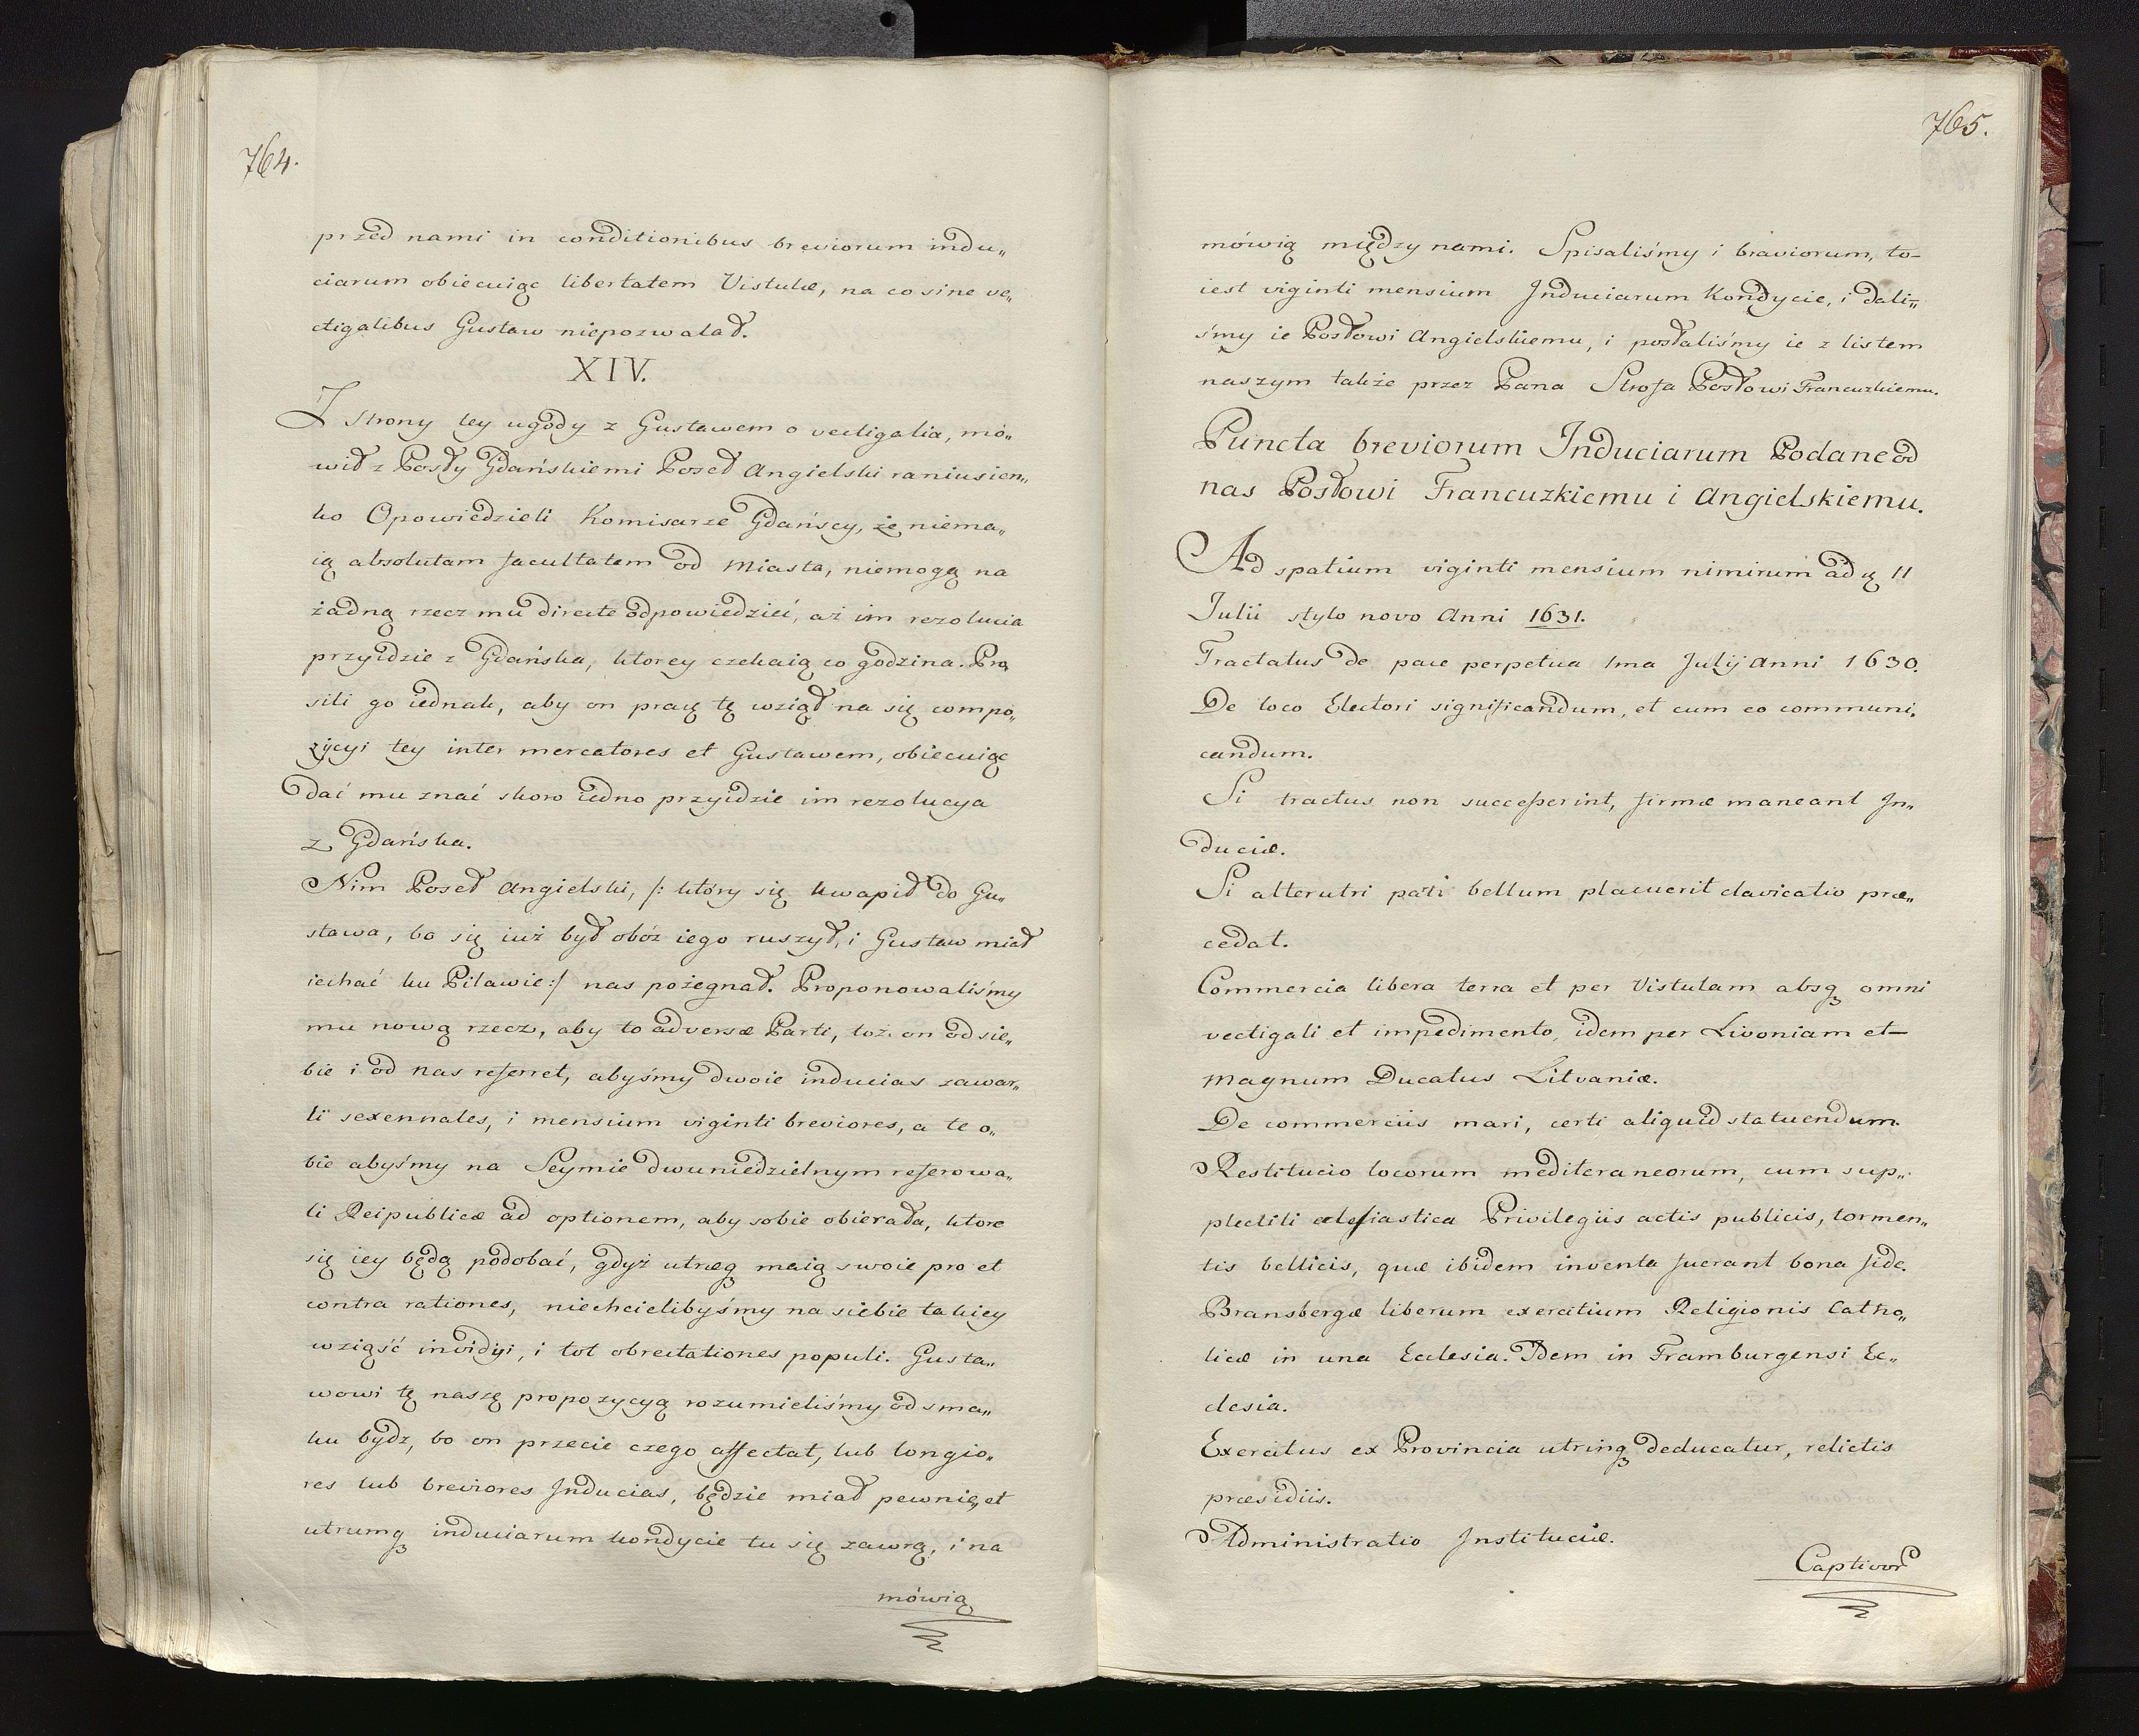 764.
przed nami in conditionibus breviorum indu„
ciarum obiecuiąc libertatem Vistulæ, na co sine ve„
ctigalibus Gustaw niepozwalał.
XIV.
Z strony tey ugody z Gustawem o vectigalia, mó„
wił z Posły Gdańskiemi Poseł Angielski raniusien„
ko Opowiedzieli Komisarze Gdańscy, że niema„
ią absolutam facultatem od Miasta, niemogą na
żadną rzecz mu directe odpowiedzieć, aż im rezolucia
przyidzie z Gdańska, ktorey czekaią co godzina. Pro„
sili go iednak, aby on pracę tę wziął na się compo„
zycyi tey inter mercatores et Gustawem, obiecuiąc
dać mu znać skoro iedno przyidzie im rezolucya
z Gdańska.
Nim Poseł Angielski, /: który się kwapił do Gu„
stawa, bo się iuż był obóz iego ruszył, i Gustaw miał
iechać ku Pilawie :/ nas pożegnał. Proponowaliśmy
mu nową rzecz, aby to adversæ Parti, toż on od sie„
bie i od nas referret, abyśmy dwoie inducias zawar„
li sexennales, i mensium viginti breviores, a te o„
bie abyśmy na Seymie dwuniedzielnym referowa„
li Reipublicæ ad optionem, aby sobie obierała, ktore
się iey będą podobać, gdyż utræq maią swoie pro et
contra rationes, niechcielibyśmy na siebie takiey
wziąść invidyi, i tot obrectationes populi. Gusta„
wowi tę naszę propozycyą rozumieliśmy od sma„
ku bydz, bo on przecie czego affectat, lub longio„
res lub breviores Inducias, będzie miał pewnie, et
utrumq induciarum kondycie tu się zawrą, i na
mówią
765.
mówią między nami. Spisaliśmy i braviorum, to-
iest viginti mensium Induciarum Kondycie, i dali„
śmy ie Posłowi Angielskiemu, i posłaliśmy ie z listem
naszym także przez Pana Strofa Posłowi Francuzkiemu.
Puncta breviorum Induciarum Podane od
nas Posłowi Francuzkiemu i Angielskiemu.
Ad spatium viginti mensium nimirum ad 11
Julii stylo novo Anni 1631.
Tractatus de pace perpetua 1ma Julij Anni 1630.
De loco Electori significandum, et cum eo communi„
candum.
Si tractus non successerint, firmæ maneant In„
duciæ.
Si alterutri pati bellum placuerit clavicatio præ„
cedat.
Commercia libera terra et per Vistulam absq omni
vectigali et impedimento, idem per Livoniam et
Magnum Ducatus Litvaniæ.
De commerciis mari, certi aliquid statuendum.
Restitucio locorum mediteraneorum, cum sup„
plectili eclesiastica Privilegiis actis publicis, tormen„
tis bellicis, quæ ibidem inventa fuerant bona fide.
Bransbergæ liberum exercitium Religionis Catho„
licæ in una Ecclesia. Idem in Framburgensi Ec„
clesia.
Exercitus ex Provincia utrinq deducatur, relictis
præsidiis.
Administratio Instituciæ.
Captivor